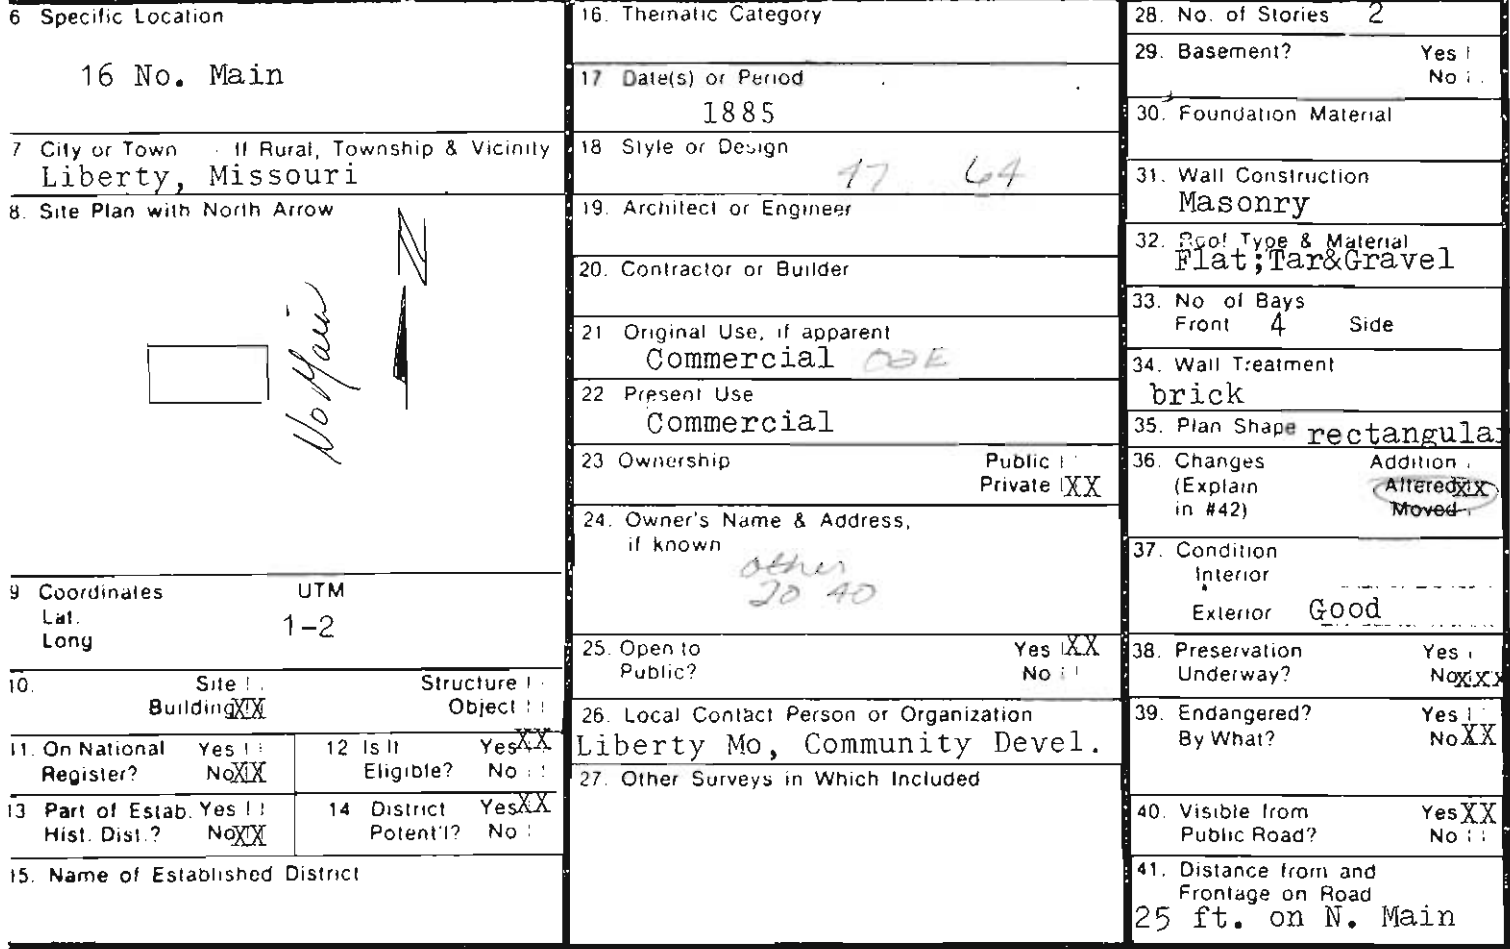 6 Specific Location
16 No. Main
7 City or Town If Rural, Township & Vicinity
Liberty, Missouri
8. Site Plan with North Arrow
N
No Main
9 Coordinates UTM
Lat.
Long
1-2
10. Site Structure
Building XX Object
11. On National Yes
Register? No XX
12 Is It Yes XX
Eligible? No
13 Part of Estab. Yes
Hist. Dist.? No XX
14 District Yes XX
Potent'l? No
15. Name of Established District
16. Thematic Category
17 Date(s) or Period
1885
18 Style or Design
47 64
19. Architect or Engineer
20. Contractor or Builder
21 Original Use, if apparent
Commercial
22 Present Use
Commercial
23 Ownership Public
Private XX
24. Owner's Name & Address,
if known
other
20 40
25. Open to Yes XX
Public? No
26. Local Contact Person or Organization
Liberty Mo, Community Devel.
27. Other Surveys in Which Included
28. No. of Stories 2
29. Basement? Yes
No
30. Foundation Material
31. Wall Construction
Masonry
32. Roof Type & Material
Flat;Tar&Gravel
33. No of Bays
Front 4 Side
34. Wall Treatment
brick
35. Plan Shape rectangular
36. Changes Addition
(Explain Altered XX
in #42) Moved
37. Condition
Interior
Exterior Good
38. Preservation Yes
Underway? No XXX
39. Endangered? Yes
By What? No XX
40. Visible from Yes XX
Public Road? No
41. Distance from and
Frontage on Road
25 ft. on N. Main